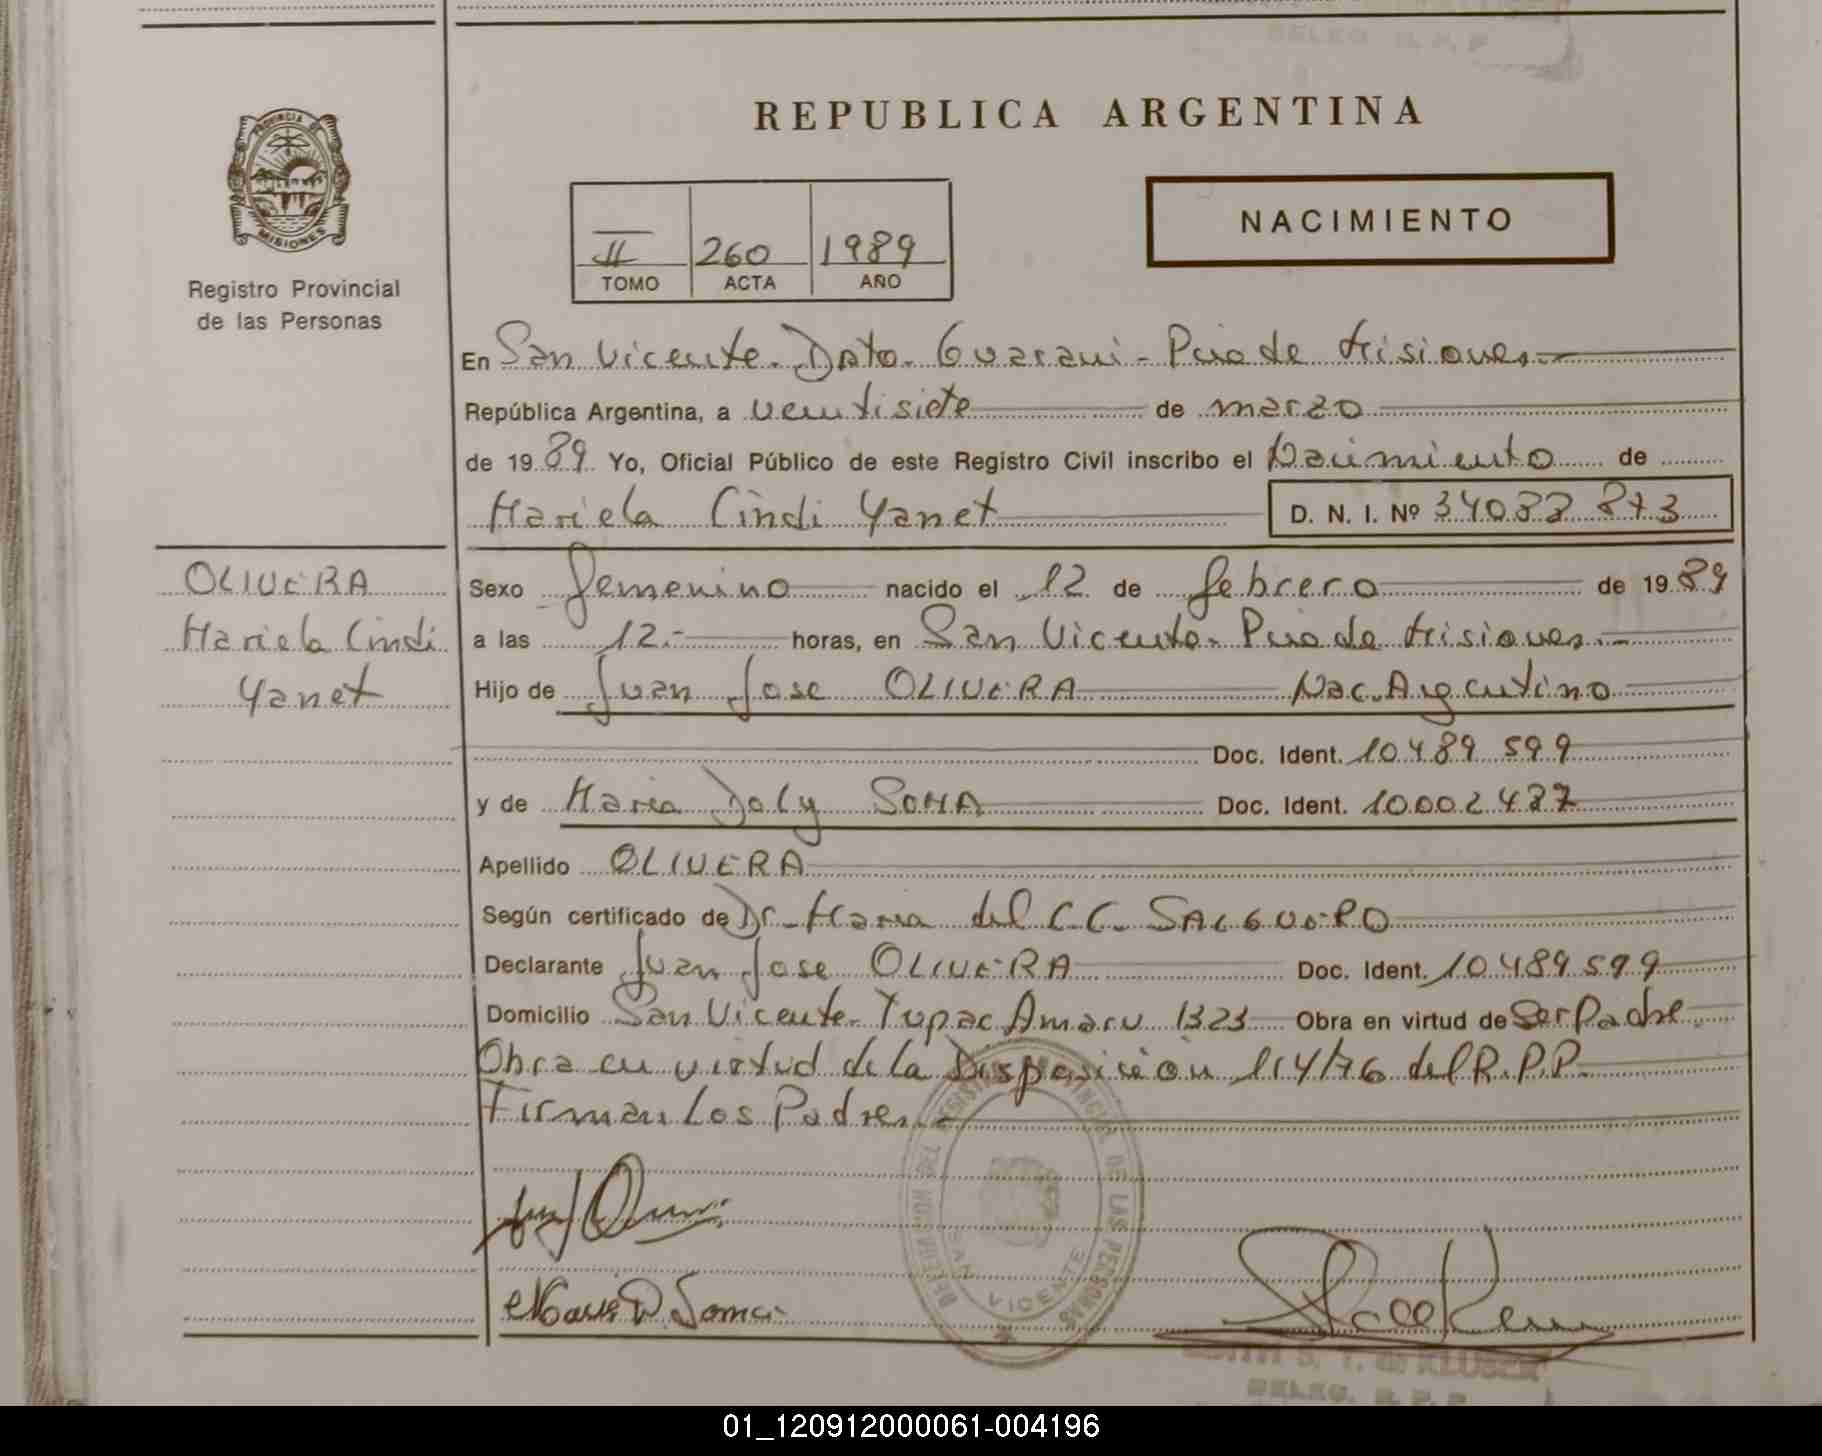 REPUBLICA ARGENTINA
PROVINCIA DE MISIONES
Registro Provincial
de las Personas
II 260 1989
TOMO ACTA AÑO
NACIMIENTO
En San Vicente. Dpto. Guarani - Pcia de Misiones.-
República Argentina, a veintisiete de marzo
de 19 89 Yo, Oficial Público de este Registro Civil inscribo el Nacimiento de
Mariela Cindi Yanet D. N. I. Nº 873
OLIVERA
Mariela Cindi
Yanet
Sexo femenino nacido el 12 de febrero de 19 89
a las 12.- horas, en San Vicente. Pcia de Misiones.-
Hijo de Juan Jose OLIVERA Nac. Argentino
Doc. Ident. 10.489.599
y de Maria Doly SOMA Doc. Ident.
Apellido OLIVERA
Según certificado de Dr. Maria del C.C. SALGUERO
Declarante Juan Jose OLIVERA Doc. Ident. 10.489.599
Domicilio San Vicente - Tupac Amaru 1323 Obra en virtud de Ser Padre.
Obra en virtud de la Disposición 114/76 del R.P.P.
Firman Los Padres.-
DELEGACION DEL REGISTRO PROVINCIAL DE LAS PERSONAS
SAN VICENTE
Maria D. Soma
S. T. de KLUBER
DELEG. R. P. P.
01_120912000061-004196